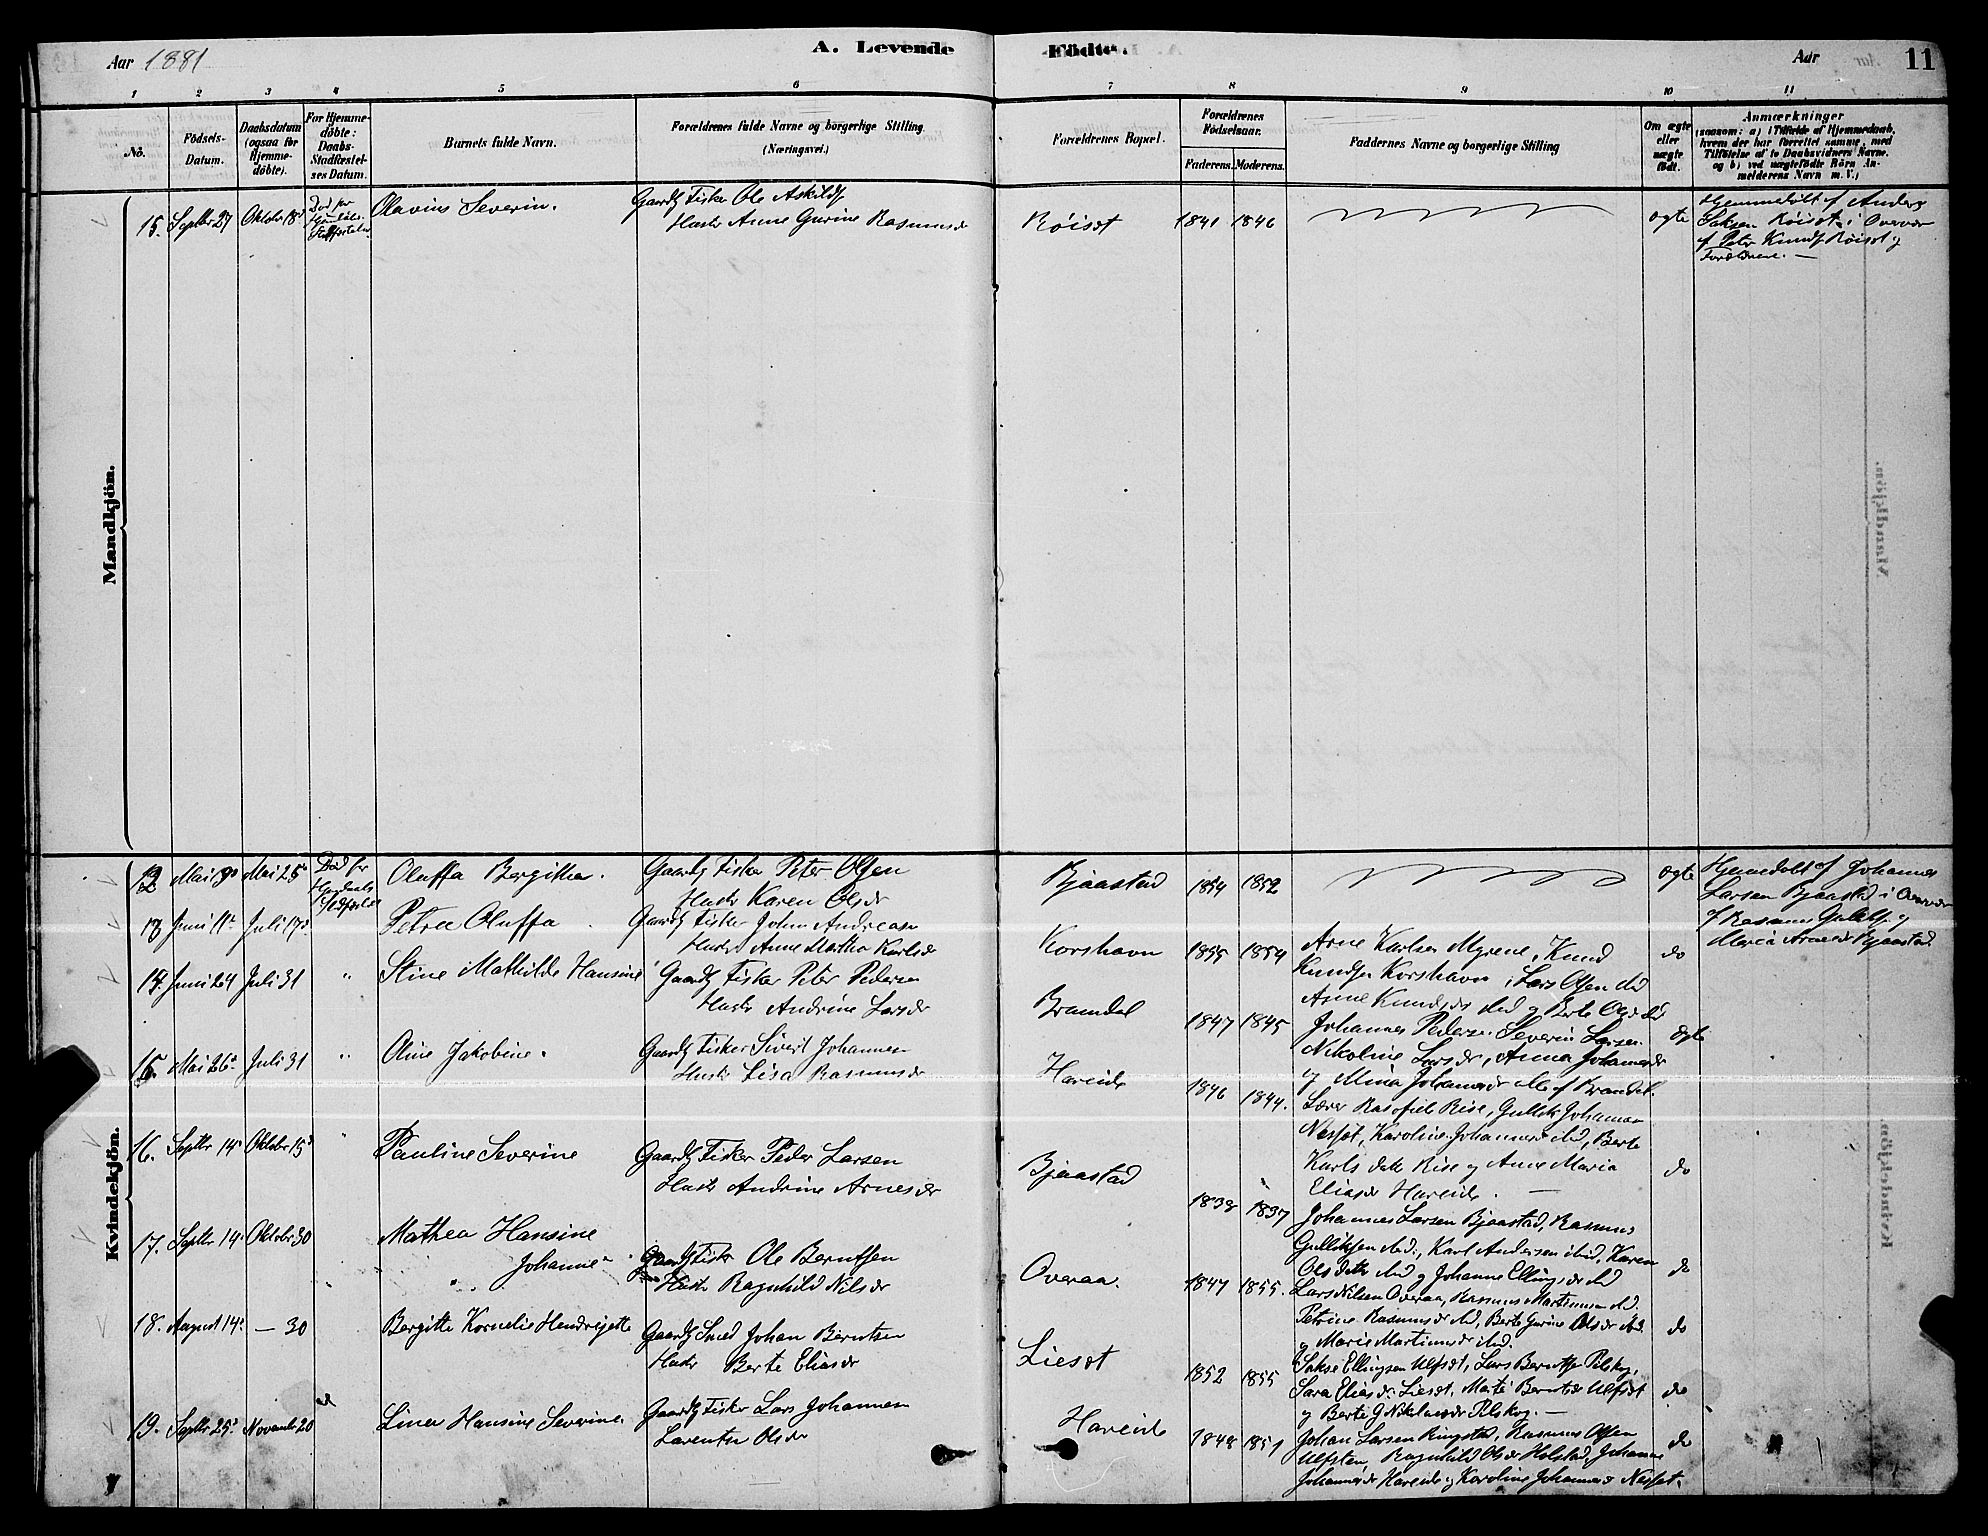 A. Levende Födte.
Aar 1881
Aar 11
1 2 3 4 5 6 7 8 9 10 11
No.
Födsels-Datum.
Daabsdatum (ogsaa for Hjemme-döbte).
For Hjemme-döbte: Daabs-Stadfæstel-ses Datum.
Barnets fulde Navn.
Forældrenes fulde Navne og borgerlige Stilling. (Næringsvei.)
Forældrenes Bopæl.
Forældrenes Födselsaar.
Faderens. Moderens.
Faddernes Navne og borgerlige Stilling
Om ægte eller uægte födt.
Anmærkninger
(saasom: a) i Tilfælde af Hjemmedaab, hvem der har forrettet samme, med Tilföielse af to Daabsvidners Navne, og b) ved uægtefödte Börn Anmelderens Navn m. V.)
Mandkjön.
15. Septbr 27 Oktobr 18 Død før Olavius Severin. Gaardb Fisker Ole Askilds
Hustr Anne Gurine Rasmusdr Röisæt 1841 1846 ægte
Hjemmedöbt af Anders
Saksen Röisæt i Overvær
af Peter Knuds Röisæt og
Forældrene. —
Kvindekjön.
12 Mai Mai 25 Död før Oluffa Bergitha. Gaardb Fisker Peter Olsen
Hustr Karen Olsdr Bjaastad 1854 1852 ægte
Hjemedöbt af Johannes
Larsen Bjaastad i Overvær
af Rasmus Gulliks og
Maria Arnesdr Bjaastad.
13 Juni 11 Juli Petra Oluffa Gaardb Fisker John Andreasen
Hustr Anne Martha Karlsdr Korshavn 1855 1854 do
Arne Karlsen Myrene, Knud
Knudsen Korshavn, Lars Olsen ibid
Anne Knudsdr ibid og Berte Olsdr ibid
14. Juni 24 Juli 31 " Stine Mathilde Hansine Gaardb Fisker Peter Pedersen
Hustr Andrine Larsdr Brandal 1847 1845 ægte
Johannes Pedersen Severin Larsen
Nikoline Larsdr, Anna Johannesdr
og Mina Johannesdr alle af Brandal.
15. Mai 26 Juli 31 " Oline Jakobine. Gaardb Fisker Sivert Johannesen
Hustr Lisa Rasmusdr Hareide 1846 1844.
Lærer Rise, Gullik Johannesen
Nesset, Karoline Johannesdr ibid, Berte
Karls datr Rise og Anne Maria
Eliasdr Hareide. — do
16. Septbr 14 Oktobr 15 " Pauline Severine Gaardb Fisker Peder Larsen
Hustr Andrine Arnesdr Bjaastad 1838 1837
Johannes Larsen Bjaastad, Rasmus
Gulliksen ibid., Karl Andersen ibid, Karen
Ols datr ibid og Johanne Ellingsdr ibid do
17. Septbr 14 Oktobr 30 Mathea Hansine
Johanne Gaardb Fisker Ole Berntsen
Hustr Ragnhild Nilsdr Overaa. 1847 1855.
Lars Nilsen Overaa, Rasmus Martinusen ibid.
Petrine Rasmusdr ibid, Berte Gurine Olsdr ibid
og Marie Martinusdr ibid. do
18. August 14 — 30 Bergitte Kornelie Hendrigette Gaardb Smed Johan Berntsen
Hustr Berte Eliasdr Liesæt 1852 1855
Sakse Ellingsen Ulfsæt, Lars Berntsen Pilskog,
Sara Eliasdr Liesæt, Marte Berntsdr Ulfsæt
og Berte G Niklasdr Pilskog. — do
19. Septbr 25 Novembr 20 Lina Hansine Severine. Gaardb Fisker Lars Johannesen
Larentse Olsdr Hareide 1848 1851
Johan Larsen Ringstad, Rasmus Olsen
Ulfsten, Ragnhild Olsdr Holstad, Johanne
Johannesdr Hareide og Karoline Johannesdr Nesset. do